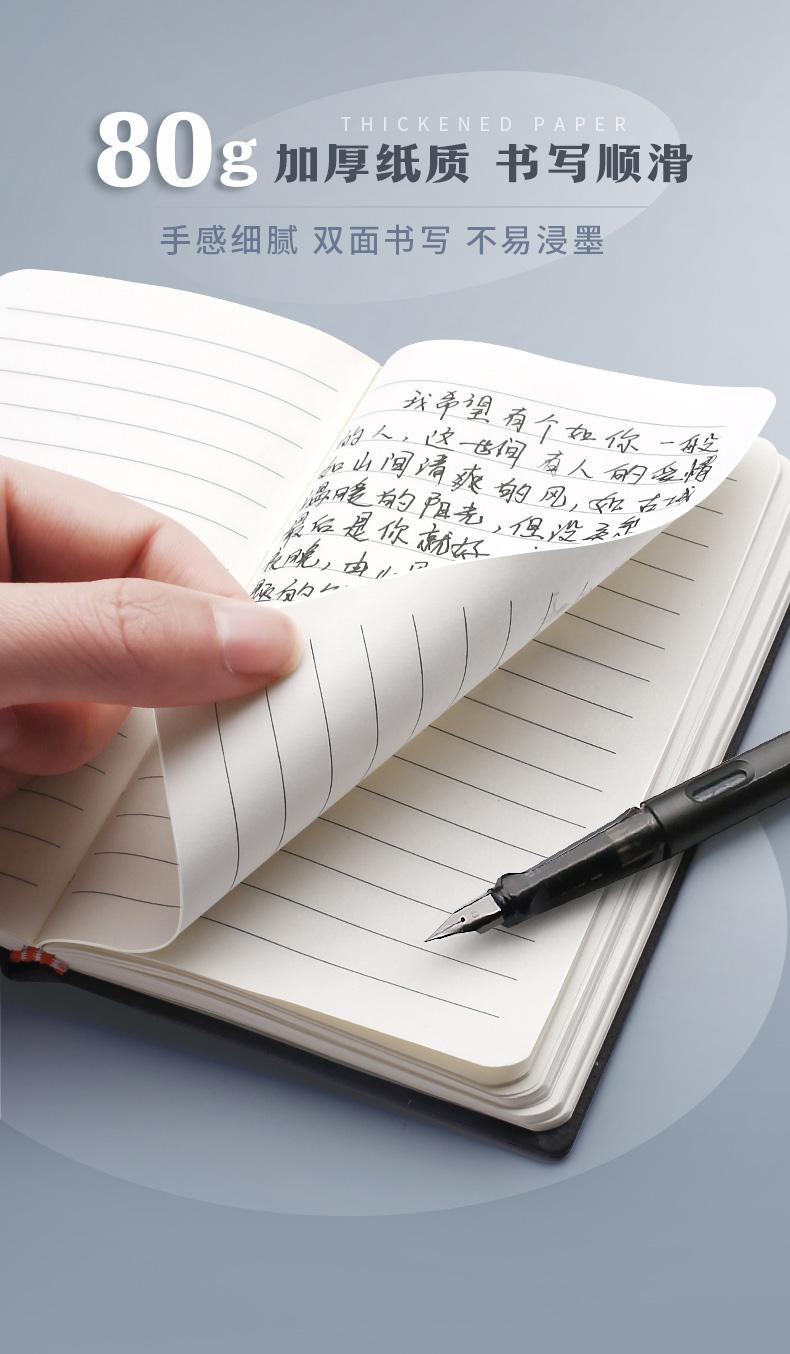 THICKENED PAPER
80g 加厚纸质 书写顺滑
手感细腻 双面书写 不易浸墨
我希望有个如你一般
的人，这世间有人的
如山间清爽的风，如古城
温暖的阳光，但没关系
最后是你就好
夜晚，由
的